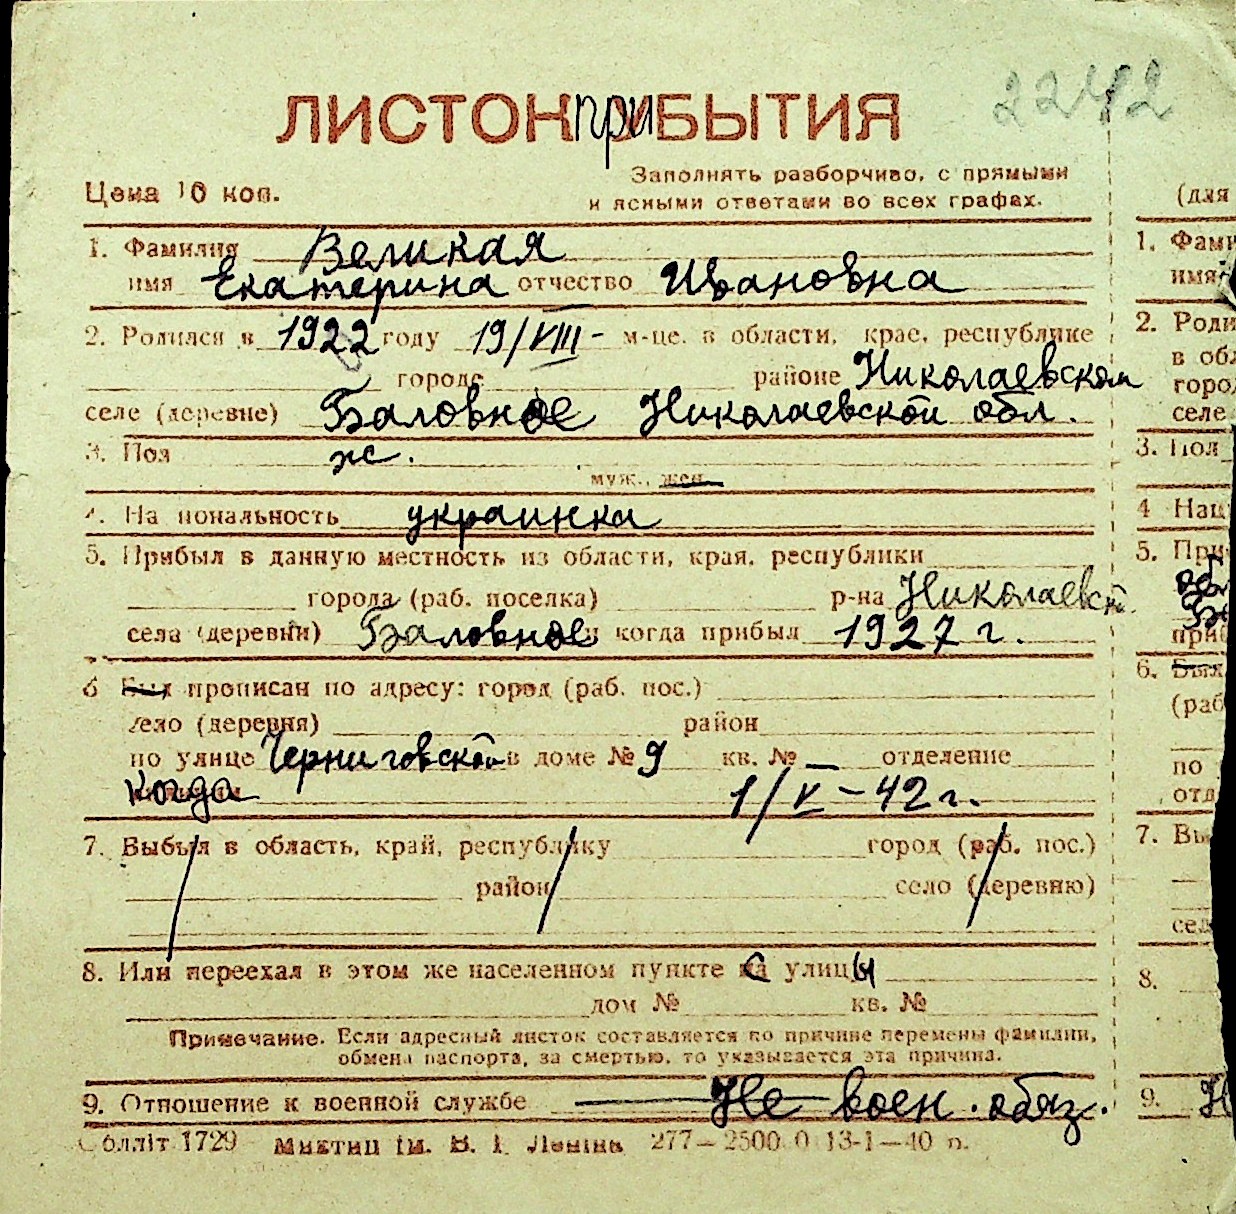 2242
ЛИСТОК приБЫТИЯ
Заполнять разборчиво, с прямыми
Цена 10 коп. и ясными ответами во всех графах.
(для
1. Фамилия Великая
имя Екатерина отчество Ивановна
1. Фами
имя
2. Родился в 1922 году 19/VIII- м-це, в области, крае, республике
городе районе Николаевском
селе (деревне) Баловное Николаевской обл.
2. Роди
в обл
город
селе
3. Пол ж.
муж., жен.
3. Пол
4. На иональность украинка
4 Нац
5. Прибыл в данную местность из области, края, республики
города (раб. поселка) р-на Николаевск.
села (деревни) Баловное и когда прибыл 1927 г.
5. При
обл
Ба
приб
6 Был прописан по адресу: город (раб. пос.)
село (деревня) район
по улице Черниговской в доме № 9 кв. № — отделение
когда 1/V-42 г.
6. Был
(раб
по
отд
7. Выбыл в область, край, республику город (раб. пос.)
район село (деревню)
7. Вы
сел
8. Или переехал в этом же населенном пункте с улицы
дом № кв. №
Примечание. Если адресный листок составляется по причине перемены фамилии,
обмена паспорта, за смертью, то указывается эта причина.
8.
9. Отношение к военной службе Не воен. обяз.
9. Н
Облліт 1729 Миктип ім. В. І. Леніна 277—2500 0 13-1—40 п.